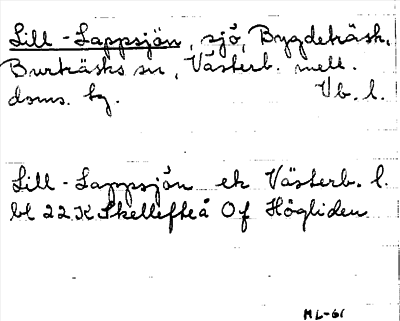 Lill-Lappsjön, sjö, Bygdeträsk,
Burträsks sn, Västerb. mell.
doms. tg.
Vb. l.
Lill-Lappsjön ek Västerb. l.
bl 22 K Skellefteå Of Högliden
ML-61